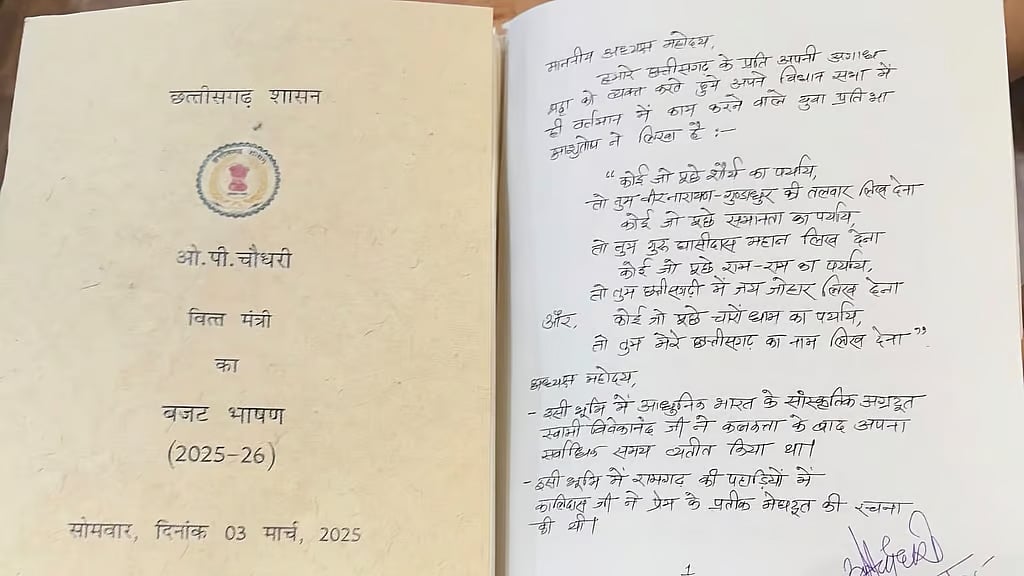 छत्तीसगढ़ शासन
ओ.पी.चौधरी
वित्त मंत्री
का
बजट भाषण
(2025-26)
सोमवार, दिनांक 03 मार्च, 2025
माननीय अध्यक्ष महोदय,
हमारे छत्तीसगढ़ के प्रति अपनी अगाध
श्रद्धा को व्यक्त करते हुये अपने विधान सभा में
ही वर्तमान में काम करने वाले युवा प्रतिभा
आशुतोष ने लिखा है :-
“कोई जो पूछे शौर्य का पर्याय,
तो तुम वीरनारायण-गुण्डाधुर की तलवार लिख देना
कोई जो पूछे समानता का पर्याय,
तो तुम गुरु घासीदास महान लिख देना
कोई जो पूछे राम-राम का पर्याय,
तो तुम छत्तीसगढ़ी में जय जोहार लिख देना
और, कोई जो पूछे चारों धाम का पर्याय,
तो तुम मेरे छत्तीसगढ़ का नाम लिख देना”
अध्यक्ष महोदय,
- इसी भूमि में आधुनिक भारत के सांस्कृतिक अग्रदूत
स्वामी विवेकानंद जी ने कलकत्ता के बाद अपना
सर्वाधिक समय व्यतीत किया था।
- इसी भूमि में रामगढ़ की पहाड़ियों में
कालिदास जी ने प्रेम के प्रतीक मेघदूत की रचना
की थी।
1